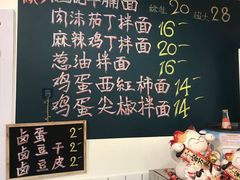 牛腩面 20 28
肉沫茄丁拌面 16-
麻辣鸡丁拌面 20-
葱油拌面 16-
鸡蛋西紅柿面 14-
鸡蛋尖椒拌面 14-
卤蛋 2-
卤豆干 2-
卤豆皮 2-